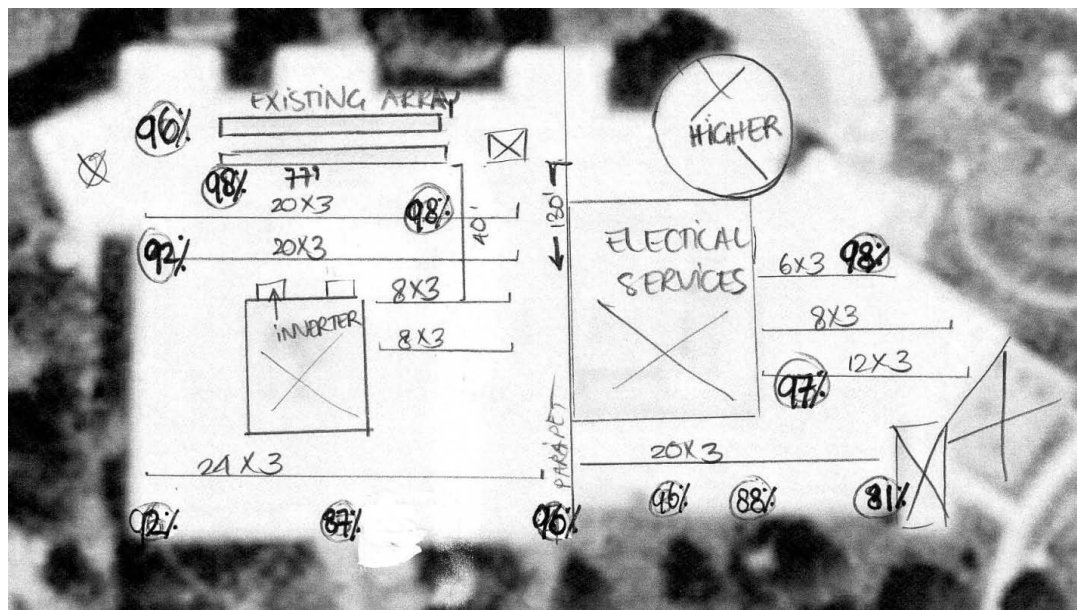 EXISTING ARRAY
96%
HIGHER
98%
77'
98%
20X3
40'
130'
92%
20X3
ELECTICAL
SERVICES
6X3
98%
8X3
INVERTER
8X3
8X3
12X3
97%
PARAPET
24X3
20X3
92%
87%
96%
96%
88%
81%